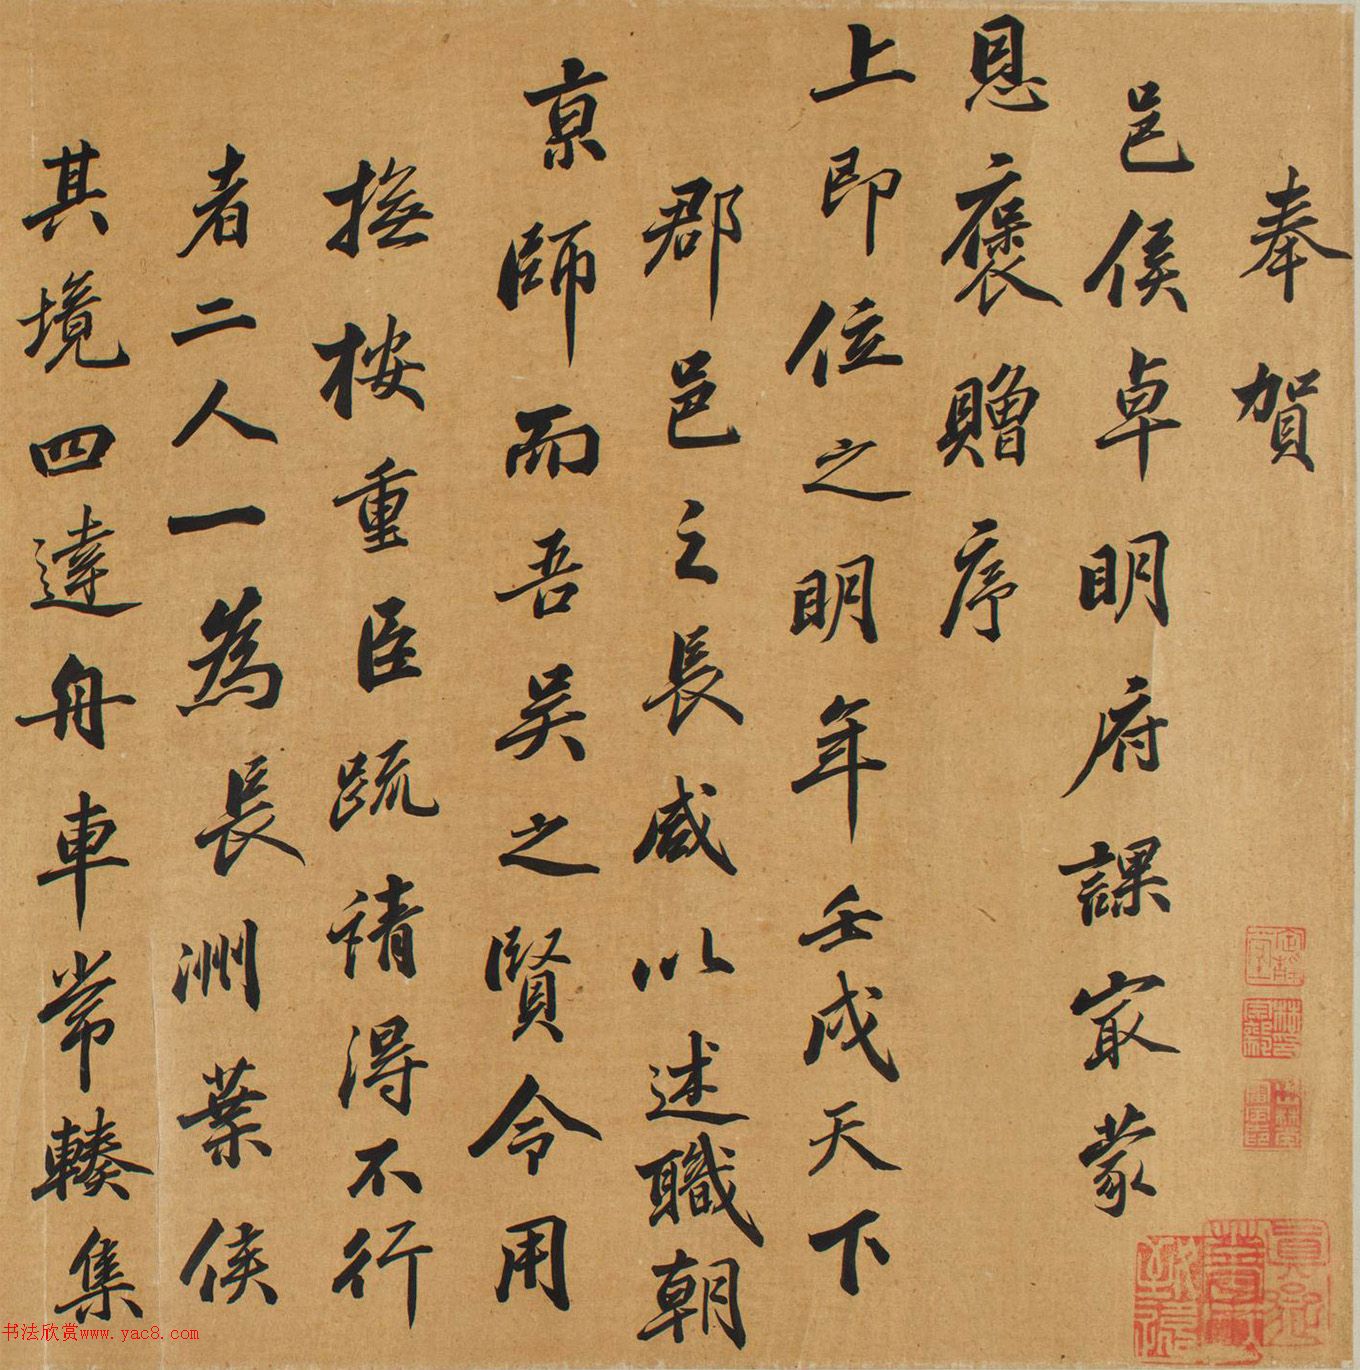 奉賀
邑侯卓明府課最蒙
恩褒贈序
上即位之明年壬戌天下
郡邑之長咸以述職朝
京師而吾吴之賢令用
撫按重臣疏請得不行
者二人一為長洲葉侯
其境四達舟車常輳集
书法欣赏www.yac8.com